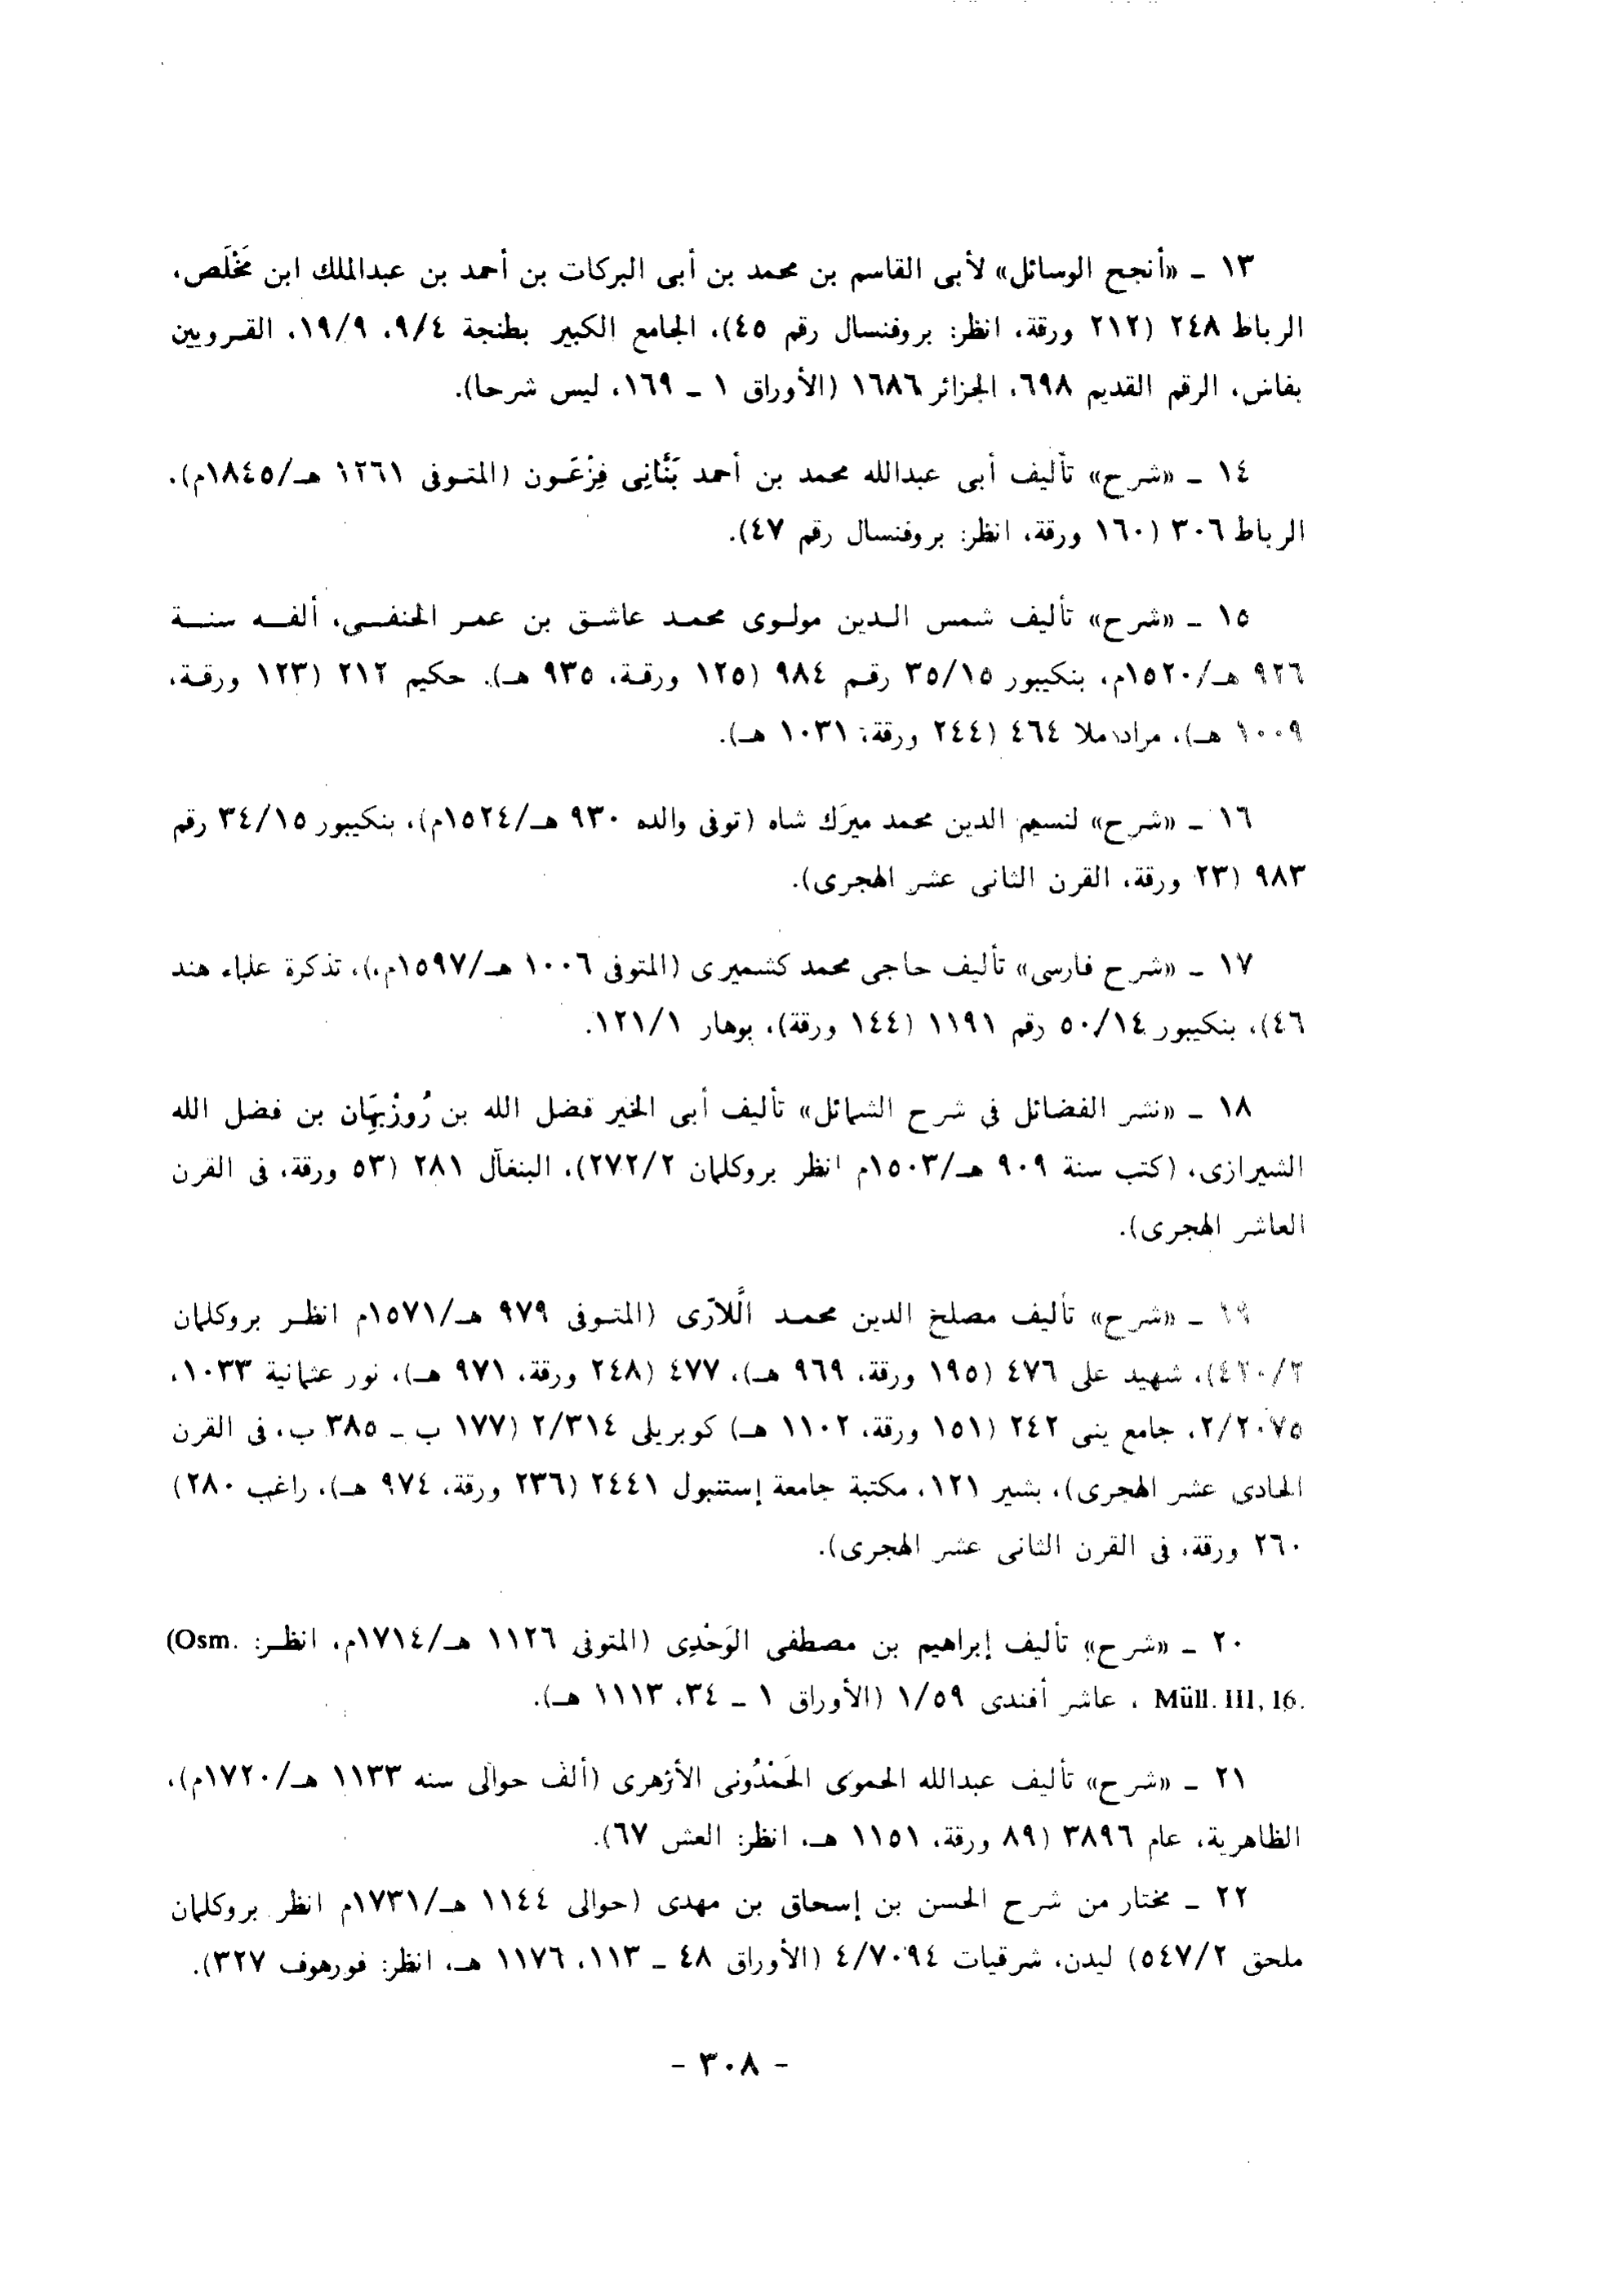 ١٣ ـ «أنجح الوسائل» لأبى القاسم بن محمد بن أبى البركات بن أحمد بن عبدالملك ابن مَخْلَص،
الرباط ٢٤٨ (٢١٢ ورقة، انظر: بروفنسال رقم ٤٥)، الجامع الكبير بطنجة ٩/٤، ١٩/٩، القرويين
بفاس، الرقم القديم ٦٩٨، الجزائر ١٦٨٦ (الأوراق ١ ـ ١٦٩، ليس شرحا).
١٤ ـ «شرح» تأليف أبى عبدالله محمد بن أحمد بَنَّانِى فِرْعَون (المتوفى ١٢٦١ هـ/١٨٤٥م)،
الرباط ٣٠٦ (١٦٠ ورقة، انظر: بروفنسال رقم ٤٧).
١٥ ـ «شرح» تأليف شمس الدين مولوى محمد عاشق بن عمر الحنفى، ألفه سنة
٩٢٦ هـ/١٥٢٠م، بنكيبور ٣٥/١٥ رقم ٩٨٤ (١٢٥ ورقة، ٩٣٥ هـ). حكيم ٢١٢ (١٢٣ ورقة،
١٠٠٩ هـ)، مراد ملا ٤٦٤ (٢٤٤ ورقة، ١٠٣١ هـ).
١٦ ـ «شرح» لنسيم الدين محمد ميرَك شاه (توفى والده ٩٣٠ هـ/١٥٢٤م)، بنكيبور ٣٤/١٥ رقم
٩٨٣ (٢٣ ورقة، القرن الثانى عشر الهجرى).
١٧ ـ «شرح فارسى» تأليف حاجى محمد كشميرى (المتوفى ١٠٠٦ هـ/١٥٩٧م،)، تذكرة علماء هند
٤٦)، بنكيبور ٥٠/١٤ رقم ١١٩١ (١٤٤ ورقة)، بوهار ١٢١/١.
١٨ ـ «نشر الفضائل فى شرح الشمائل» تأليف أبى الخير فضل الله بن رُوزْبِهَان بن فضل الله
الشيرازى، (كتب سنة ٩٠٩ هـ/١٥٠٣م انظر بروكلمان ٢٧٢/٢)، البنغال ٢٨١ (٥٣ ورقة، فى القرن
العاشر الهجرى).
١٩ ـ «شرح» تأليف مصلخ الدين محمد اللَّارَى (المتوفى ٩٧٩ هـ/١٥٧١م انظر بروكلمان
٤٢٠/٢)، شهيد على ٤٧٦ (١٩٥ ورقة، ٩٦٩ هـ)، ٤٧٧ (٢٤٨ ورقة، ٩٧١ هـ)، نور عثمانية ١٠٣٣،
٢/٢٠٧٥، جامع ينى ٢٤٢ (١٥١ ورقة، ١١٠٢ هـ) كوبريلى ٢/٣١٤ (١٧٧ ب ـ ٣٨٥ ب، فى القرن
الحادى عشر الهجرى)، بشير ١٢١، مكتبة جامعة إستنبول ٢٤٤١ (٢٣٦ ورقة، ٩٧٤ هـ)، راغب ٢٨٠)
٢٦٠ ورقة، فى القرن الثانى عشر الهجرى).
٢٠ ـ «شرح» تأليف إبراهيم بن مصطفى الوَحْدِى (المتوفى ١١٢٦ هـ/١٧١٤م، انظر: Osm.)
Müll. III, 16. ، عاشر أفندى ١/٥٩ (الأوراق ١ ـ ٣٤، ١١١٣ هـ).
٢١ ـ «شرح» تأليف عبدالله الحموى الحَمْدُونى الأزهرى (ألف حوالى سنه ١١٣٣ هـ/١٧٢٠م)،
الظاهرية، عام ٣٨٩٦ (٨٩ ورقة، ١١٥١ هـ، انظر: العش ٦٧).
٢٢ ـ مختار من شرح الحسن بن إسحاق بن مهدى (حوالى ١١٤٤ هـ/١٧٣١م انظر بروكلمان
ملحق ٥٤٧/٢) ليدن، شرقيات ٤/٧٠٩٤ (الأوراق ٤٨ ـ ١١٣، ١١٧٦ هـ، انظر: فورهوف ٣٢٧).
- ٣٠٨ -